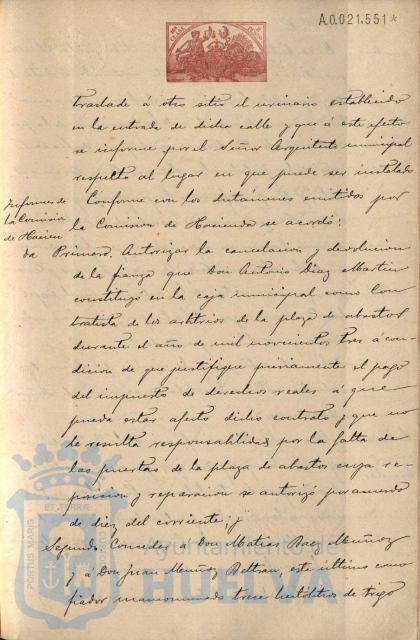 A.0.021,551*
traslade á otro sitio el urinario establecido
en la entrada de dicha calle y que á este efecto
se informe por el Señor Arquitecto municipal
respecto al lugar en que puede ser instalado
Informes de
la Comision
de Hacien
da
Conforme con los dictámenes emitidos por
la Comision de Hacienda se acordó:
Primero. Autorizar la cancelacion y devolucion
de la fianza que Don Antonio Diaz Martin
constituyó en la caja municipal como Con
tratista de los arbitrios de la plaza de abastos
durante el año de mil novecientos tres á con
dicion de que justifique previamente el pago
del impuesto de derechos reales á que
pueda estar afecto dicho contrato y que no
resulta responsabilidad por la falta de
las puertas de la plaza de abastos cuya re
posicion y reparacion se autorizó por acuerdo
de diez del corriente; y
Segundo. Conceder á Don Matias Baez Muñoz
y á Don Juan Muñoz Beltran, este último como
fiador mancomunado trece hectolitros de trigo
PORTUS MARIS
ET TERRÆ
CUSTODIA
Ayuntamiento de
HUELVA